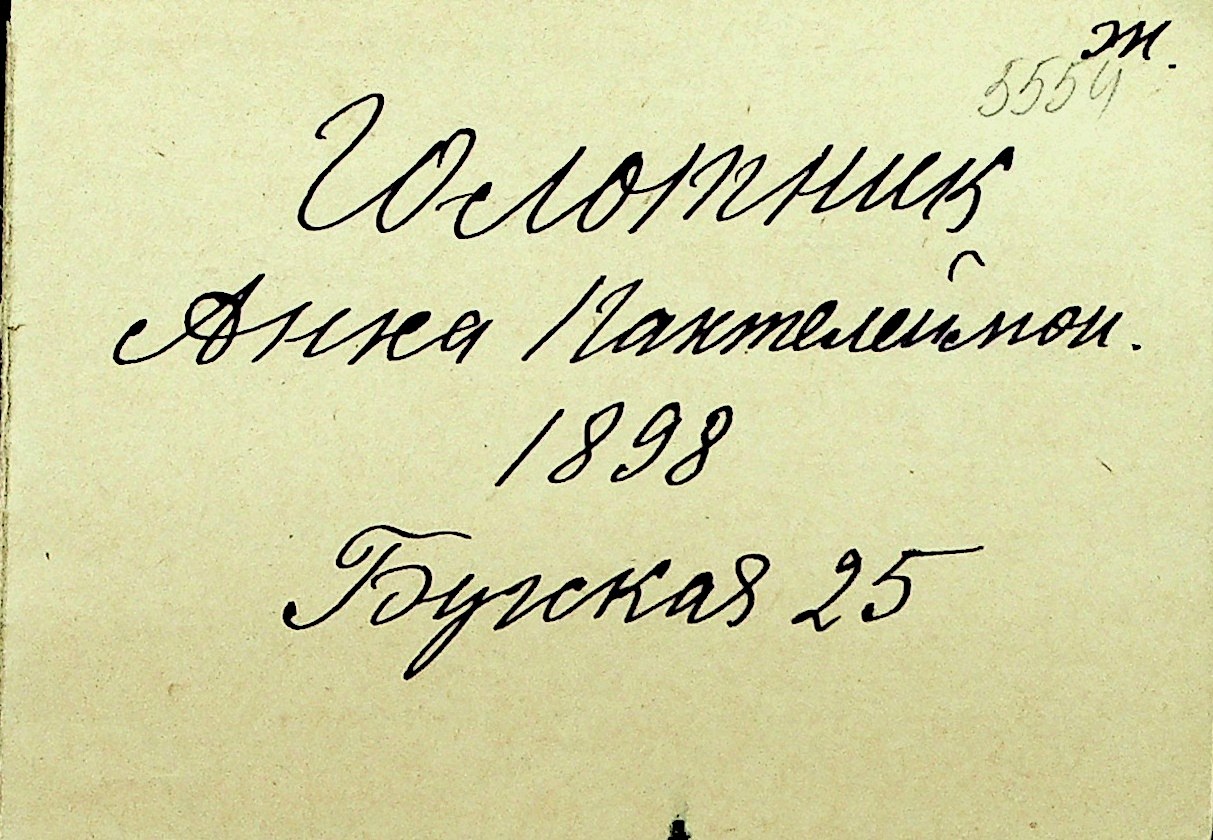 ж.
5554
Голотник
Анна Пантелеймон.
1898
Бугская 25